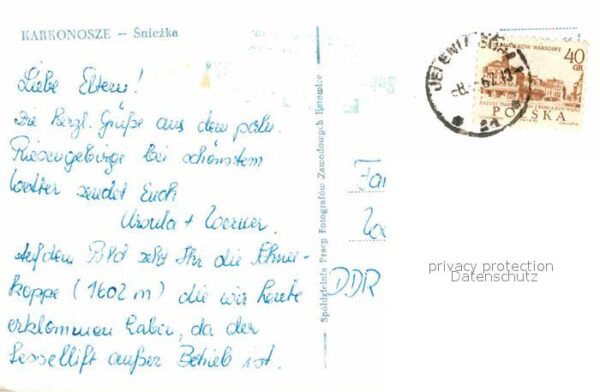 KARKONOSZE – Śnieżka
Liebe Eltern!
Die herzl. Grüße aus dem poln.
Riesengebirge bei schönstem
Wetter sendet Euch
Ursula + Werner.
Auf dem Bild seht Ihr die Schnee-
koppe (1602 m) die wir heute
erklommen haben, da der
Sessellift außer Betrieb ist.
Spółdzielnia Pracy Fotografów Zawodowych Katowice
JELENIA GÓRA
40
GR
POLSKA
Fam
DDR
privacy protection
Datenschutz